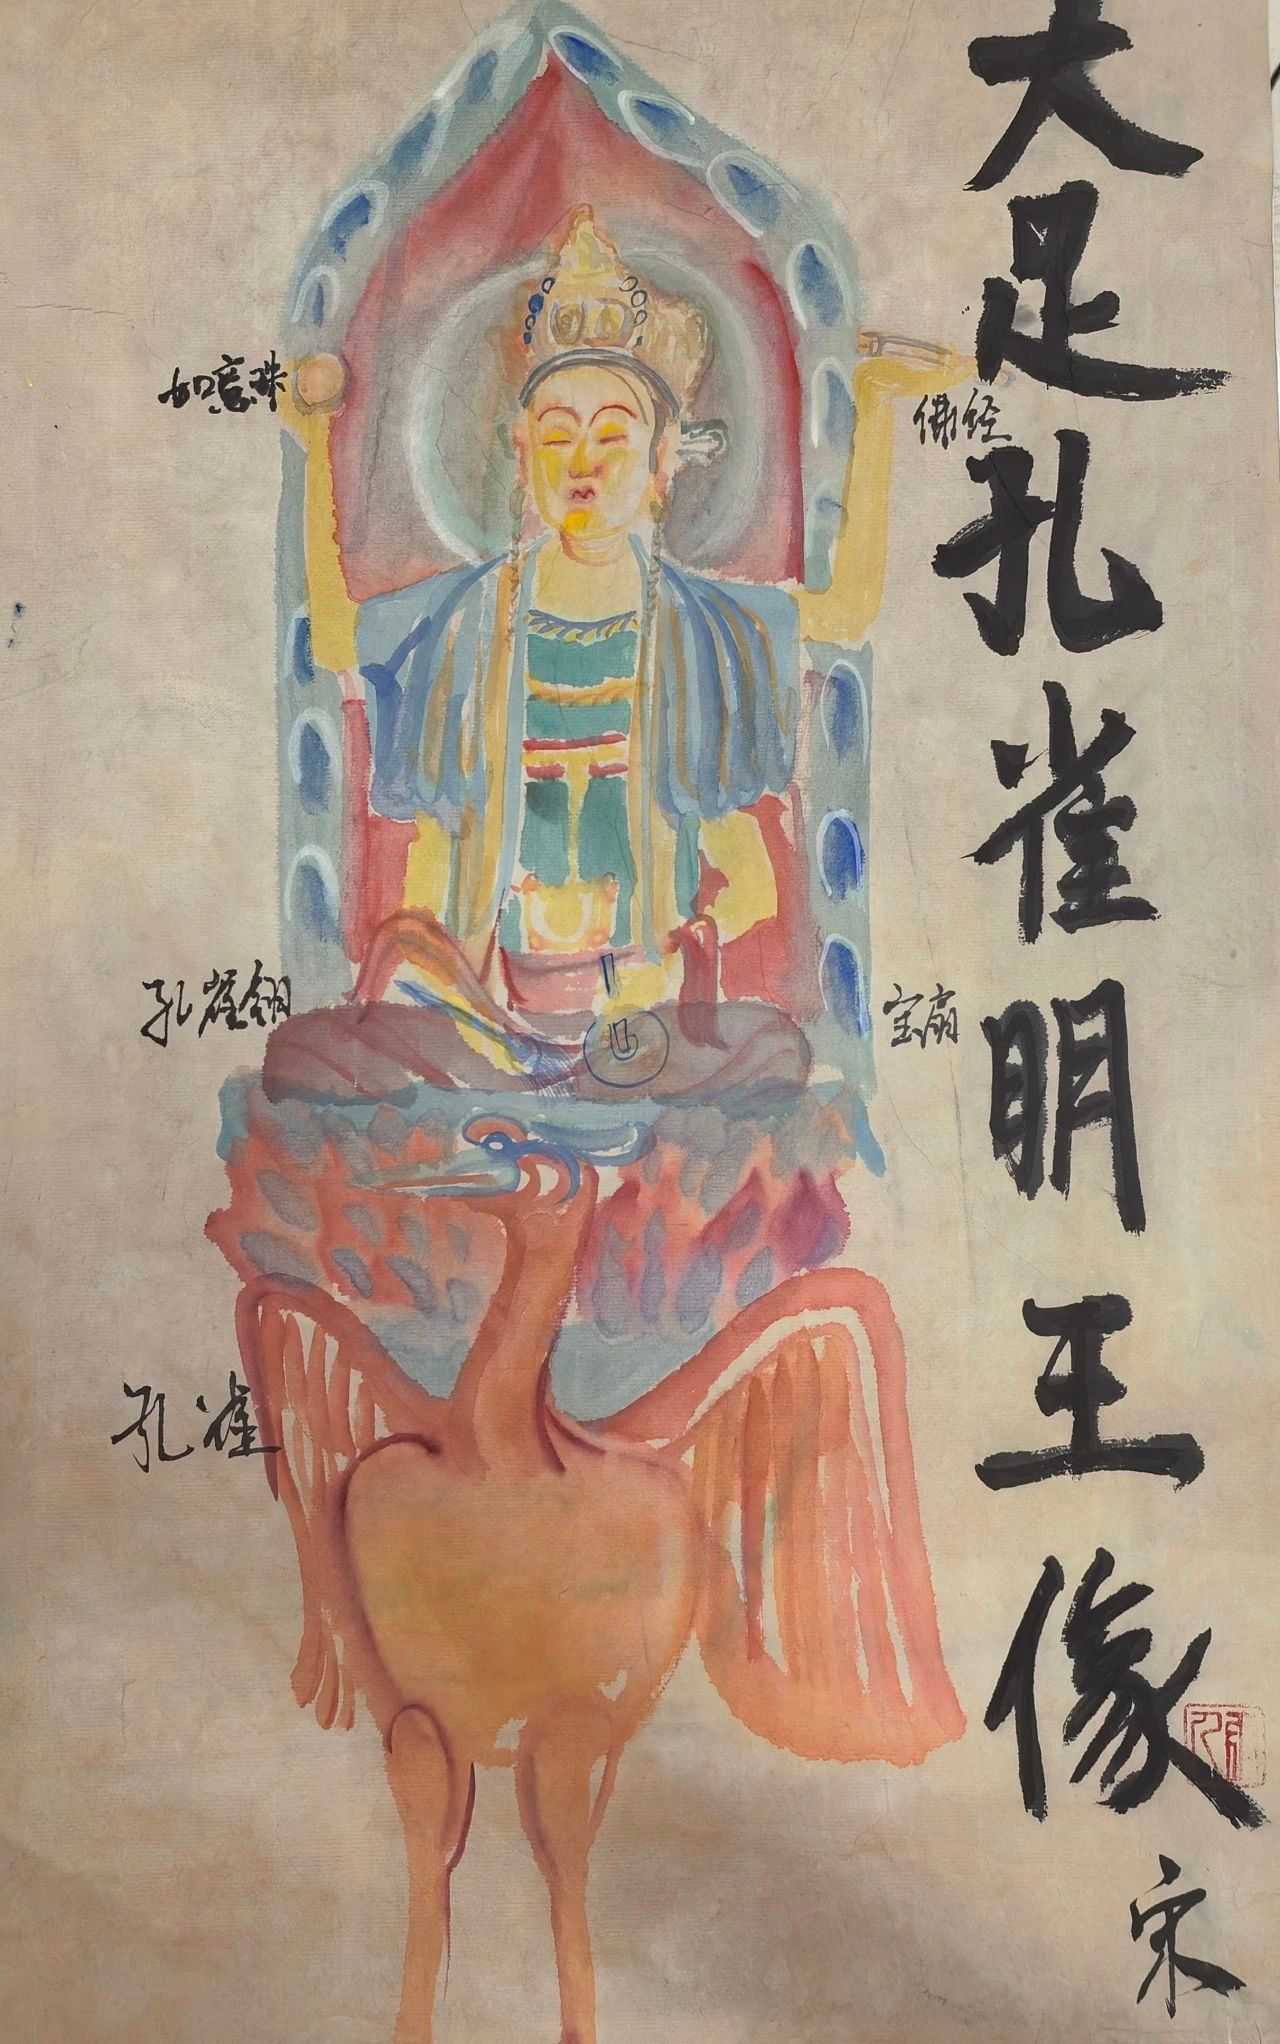 大足孔雀明王像
宋
如意珠
佛经
孔雀翎
宝扇
孔雀